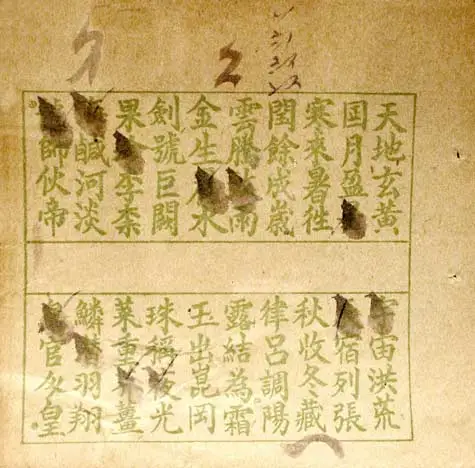 天地玄黃
宙洪荒
囸月盈
宿列張
寒來暑徃
秋收冬藏
閏餘成歲
律呂調陽
雲騰雨
露結為霜
金生水
玉出崑岡
劍號巨闕
珠稱夜光
果李柰
菜重芥薑
鹹河淡
鱗羽翔
師伙帝
官皇